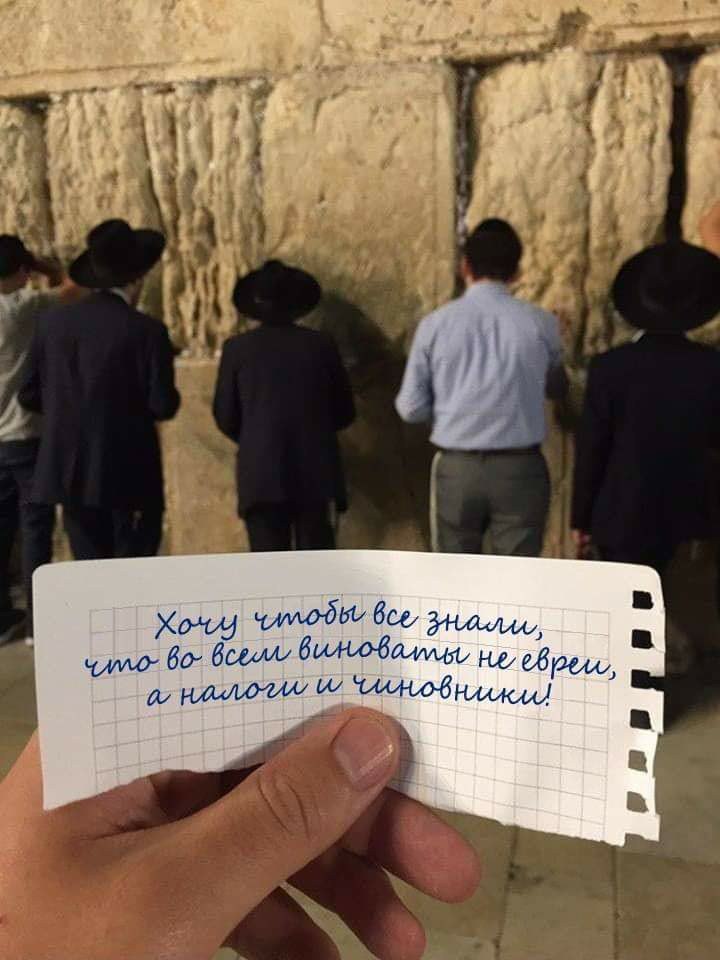 Хочу чтобы все знали,
что во всем виноваты не евреи,
а налоги и чиновники!